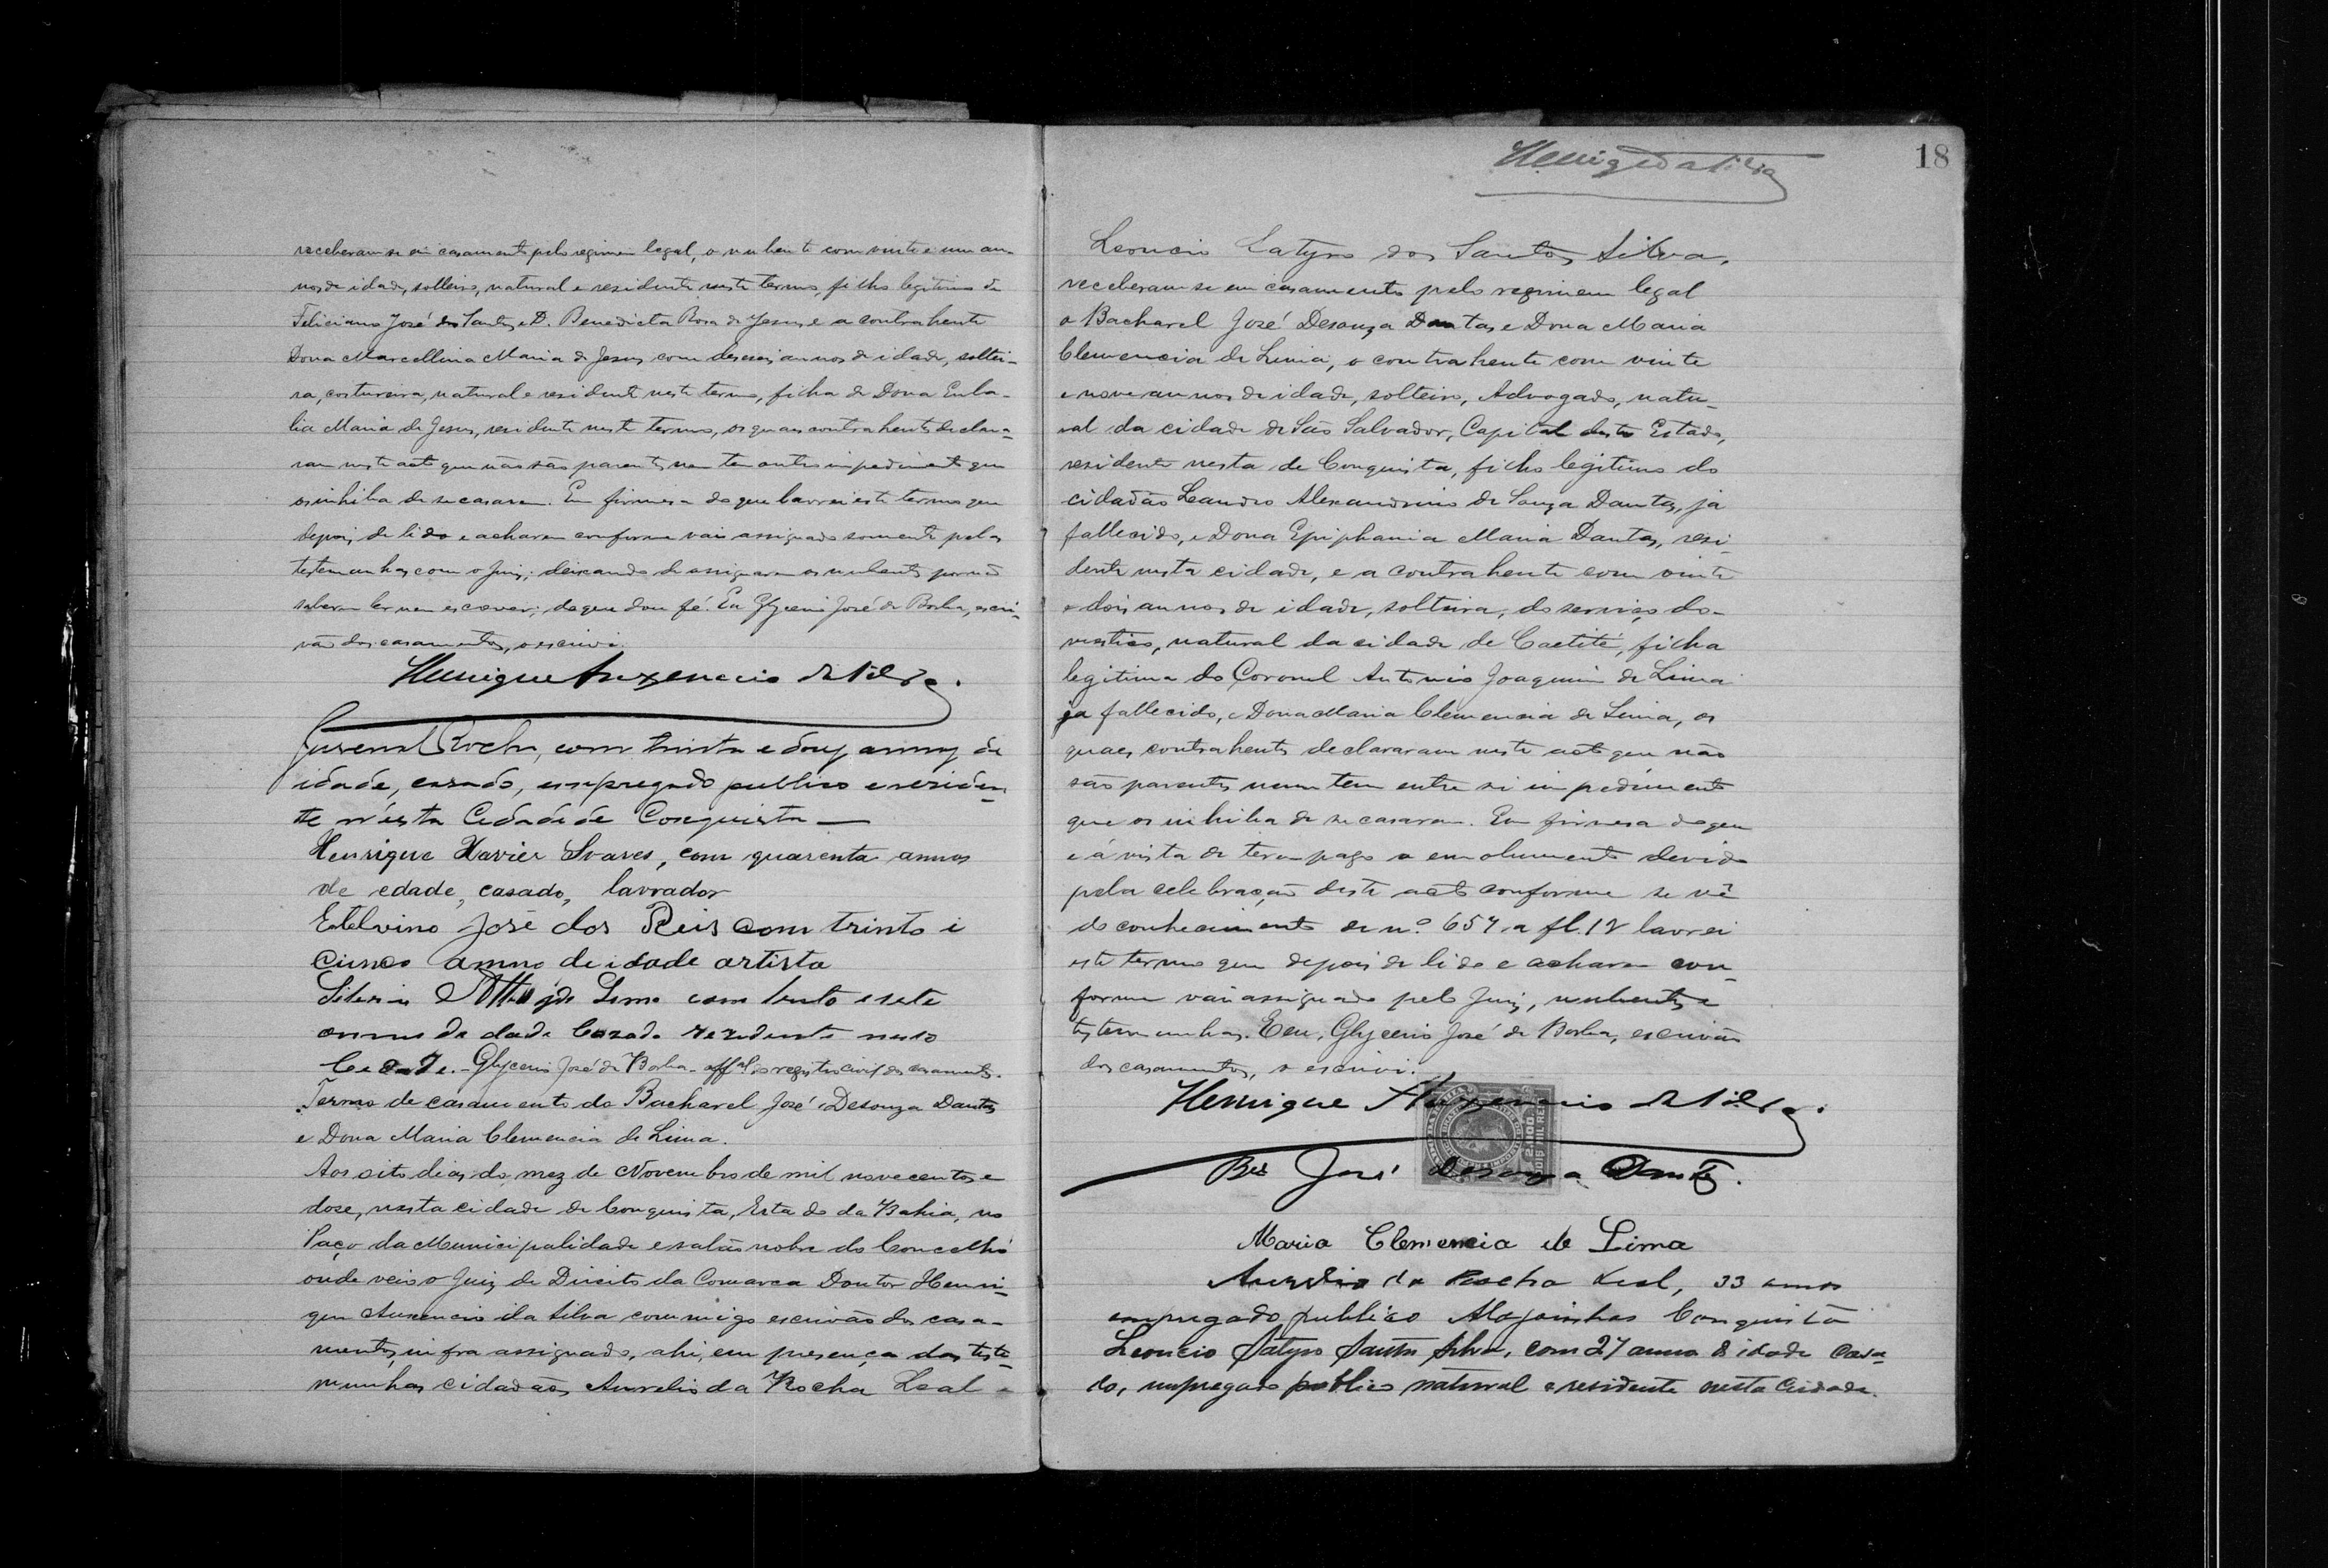 receberam-se em casamento pelo regimen legal, o nubente com vinte e um an-
nos de idade, solteiro, natural e residente neste termo, filho legitimo de
Feliciano José dos Santos e D. Benedicta Rosa de Jesus, e a contrahente
Dona Marcellina Maria de Jesus, com deseseis annos de idade, soltei-
ra, costureira, natural e residente neste termo, filha de Dona Eula-
lia Maria de Jesus, residente neste termo, os quaes contrahentes declara-
ram neste acto que não são parentes nem tem outro impedimento que
os inhiba de se casarem. Em firmesa do que lavrei este termo que
depois de lido e acharem conforme vai assignado somente pelas
testemunhas com o Juiz; deixando de assignarem os nubentes por não
saberem ler nem escrever; do que dou fé. Eu Glycerio José de Borba, escri-
vão dos casamentos, o escrivi.
Henrique Auxencio da Silva.
Juvenal Rocha, com trinta e dous annos de
idade, casado, empregado publico e residen-
te n'esta Cidade de Conquista —
Henrique Xavier Soares, com quarenta annos
de edade, casado, lavrador
Estelvino José dos Reis com trinta i
cinco annos de idade artista
Lima com trinta e sete
annos de dade Cazado rezidente nesta
Cidade. - Glycerio José de Borba - offal do registro civil dos casamentos.
Termo de casamento do Bacharel José Desouza Dantas
e Dona Maria Clemencia de Lima.
Aos oito dias do mez de Novembro de mil novecentos e
dose, nesta cidade de Conquista, Estado da Bahia, no
Paço da Municipalidade e salão nobre do Concelho
onde veio o Juiz de Direito da Comarca Doutor Henri-
que Auxencio da Silva commigo escrivão dos casa-
mentos, infra assignado, ahi, em presença das teste-
munhas cidadãos Aurelio da Rocha Leal e
Henrique da Silva
18
Leoncio Satyro dos Santos Silva,
receberam-se em casamento pelo regimem legal
o Bacharel José Desouza Dantas e Dona Maria
Clemencia de Lima, o contrahente com vinte
e nove annos de idade, solteiro, Advogado, natu-
ral da cidade de São Salvador, Capital deste Estado,
residente nesta de Conquista, filho legitimo do
cidadão Leandro Alexandrino de Souza Dantas, já
fallecido, e Dona Epiphania Maria Dantas, resi-
dente nesta cidade, e a contrahente com vinte
e dois annos de idade, solteira, do serviço do-
mestico, natural da cidade de Caetité, filha
legitima do Coronel Antonio Joaquim de Lima
ja fallecido, e Dona Maria Clemencia de Lima, os
quaes contrahentes declararam neste acto que não
são parentes nem tem entre si impedimento
que os inhiba de se casaram. Em firmesa do que
e á vista de terem pago o emolumento devido
pela celebração deste acto conforme se vê
do conhecimento de nº 657 a fl. 12 lavrei
este termo que depois de lido e acharem con-
forme vai assignado pelo Juiz, nubentes e
testemunhas. Eeu, Glycerio José de Borba, escrivão
dos casamentos, o escrivi.
Henrique Auxencio da Silva.
Bel José Desouza Dantas.
Maria Clemencia de Lima
Aurelio da Rocha Leal, 33 annos
empregado publico Alagoinhas Conquista
Leoncio Satyro Santos Silva, com 27 annos de idade Casa-
do, empregado publico natural e residente nesta Cidade.